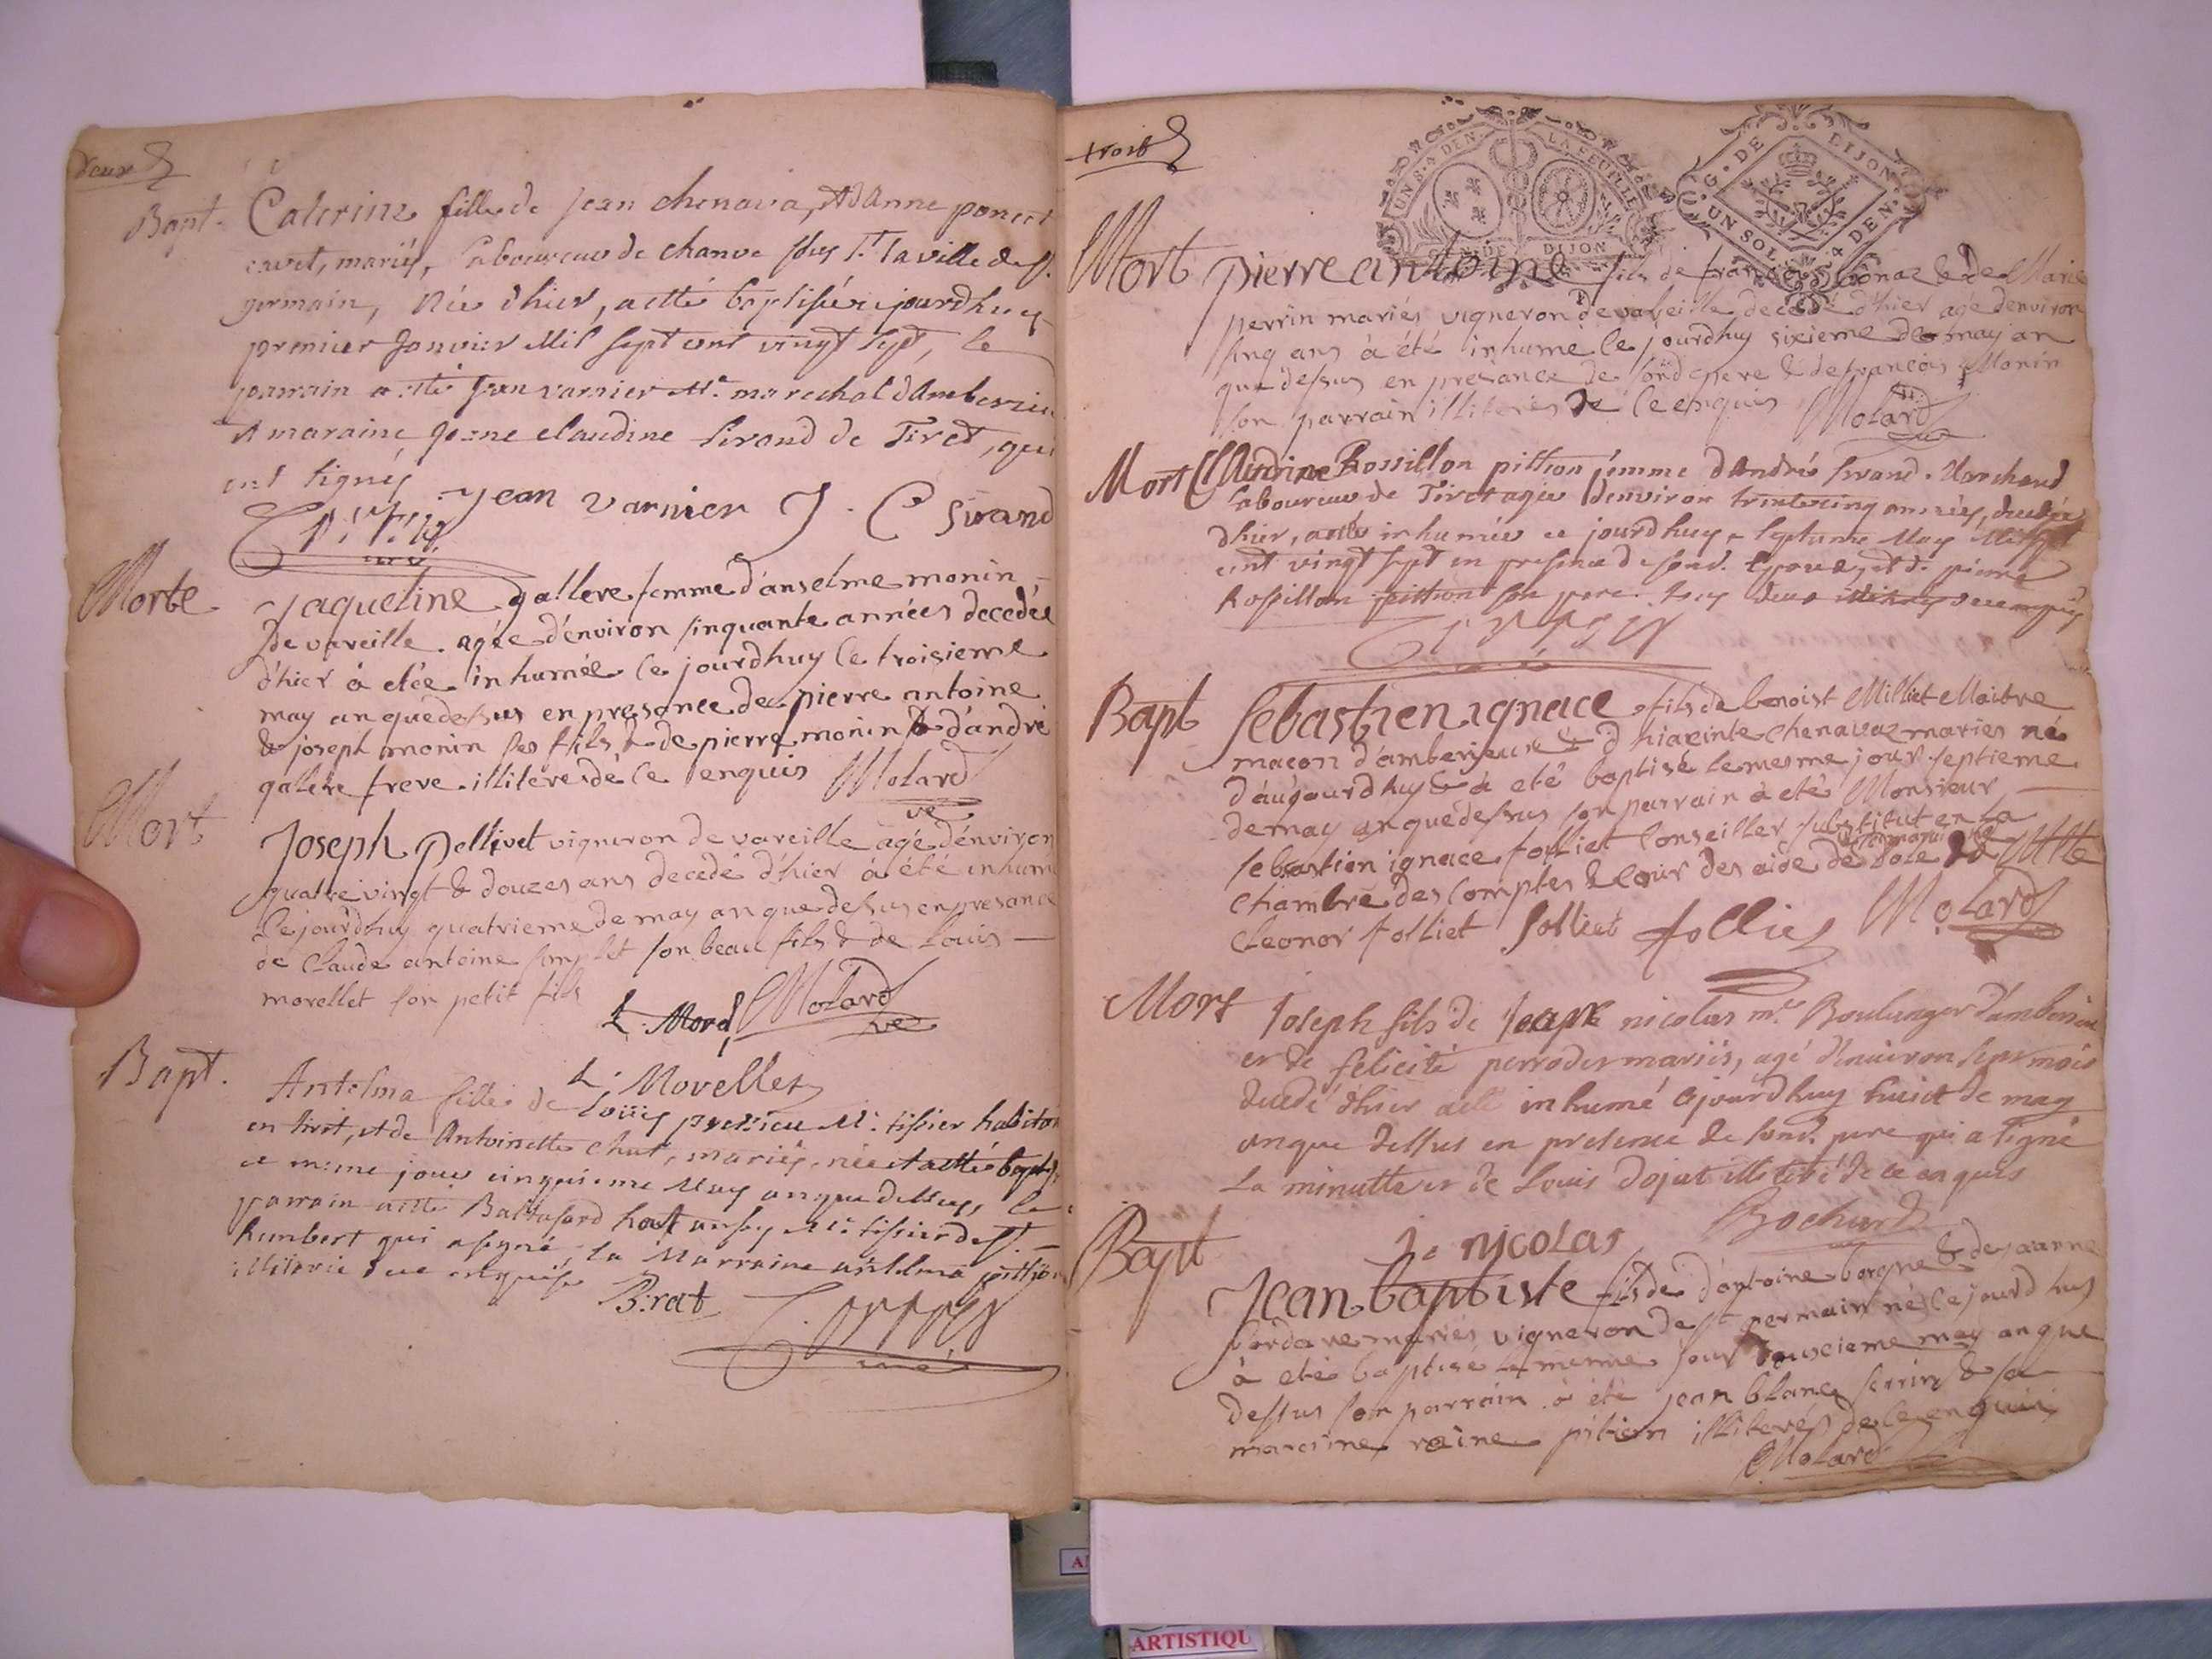 deux
Bapt. Caterine fille de Jean chenava, et d'Anne poncet
cavet, mariés, laboureur de chanve sous la ville de St.
germain, née d'hier, a etté baptisée cejourdhuy
premier Janvier Mil sept cent vingt sept, le
parrain a etté Jean varnier Me. marechal d'Amberieu
et maraine Jeanne claudine Sirand de Tiret, qui
ont signés
Jean varnier J. C Sirand
curé
Morte Jaqueline gallere femme d'anselme monin
de vareille agée d'environ sinquante années decedée
d'hier à etée inhumée ce jourdhuy le troisieme
may an que dessus en presance de pierre antoine
& joseph monin ses fils & de pierre monin & d'andré
galere frere illiteres dé ce enquis Molard
ve
Mort Joseph pellivet vigneron de vareille agé d'environ
quatre vingt & douzes ans decedé d'hier à été inhumé
ce jourdhuy quatrieme de may an que dessus en presance
de Claude antoine son beau fils & de Louis
morellet son petit fils
L. Morel Molard
ve
L. Morellet
Bapt. Antelma fille de Loüis pressieu Me. tissier habitant
en tiret, et de Antoinette Chat, mariés, née et a etté baptisée
ce meme jour cinquieme May an que dessus, le
parrain a etté Baltasard Me. tissier de St.
Rambert qui a signé, la Marraine antelma pittion
illiterée de ce enquise
B. rat
curé
trois
UN S. 4 DEN. LA FEUILLE
GEN. DE DIJON
G. DE DIJON
UN SOL. 4 DEN.
Mort pierre antoine fils de françois bonaz & de Marie
perrin mariés vigneron de vareille decedé d'hier agé denviron
sinq ans à été inhumé ce jourdhuy sixieme de may an
que dessus en presance de son d pere & de françois Monin
son parrain illiterés de ce enquis Molard
ve
Mort Claudine Rossillon pittion femme d'André Sirand Marchand
laboureur de Tiret agée denviron trente cinq années, decedée
dhier, a etté inhumée ce jourdhuy septieme May Mil sept
cent vingt sept en presence de son d. epoux, et de pierre
Rossillon pittion son pere tous deux de ce enquis
Bapt Sebastien ignace fils de benoist Milliet Maitre
macon d'amberieux & d hiacinte chenavaz mariés né
d'aujourdhuy & à eté baptisé le mesme jour septieme
de may an que dessus son parrain à eté Monsieur
sebastien ignace folliet Conseiller substitut en la
chambre des Comptes & Cour des aide de Dole & Mlle
Eleonor folliet folliet folliet Molard
Mort Joseph fils de Joseph nicolas me. Boulanger d'amberieu
et de felicité perrodet mariés, agé d'environ sept mois
decedé d'hier a eté inhumé cejourdhuy huict de may
an que dessus en presence de son d. pere qui a signé
la minutte et de Louis Dojat illiteré de ce enquis
J. nicolas Bochard
Bapt Jean baptiste fils de d'antoine borgne & de jeanne
mariés vigneron de st germain né ce jourd huy
à eté baptisé le mesme jour may an que
dessus son parrain à été jean blanc & sa
maraine reine pition illiterés de ce enquis
Molard
ARTISTIQU